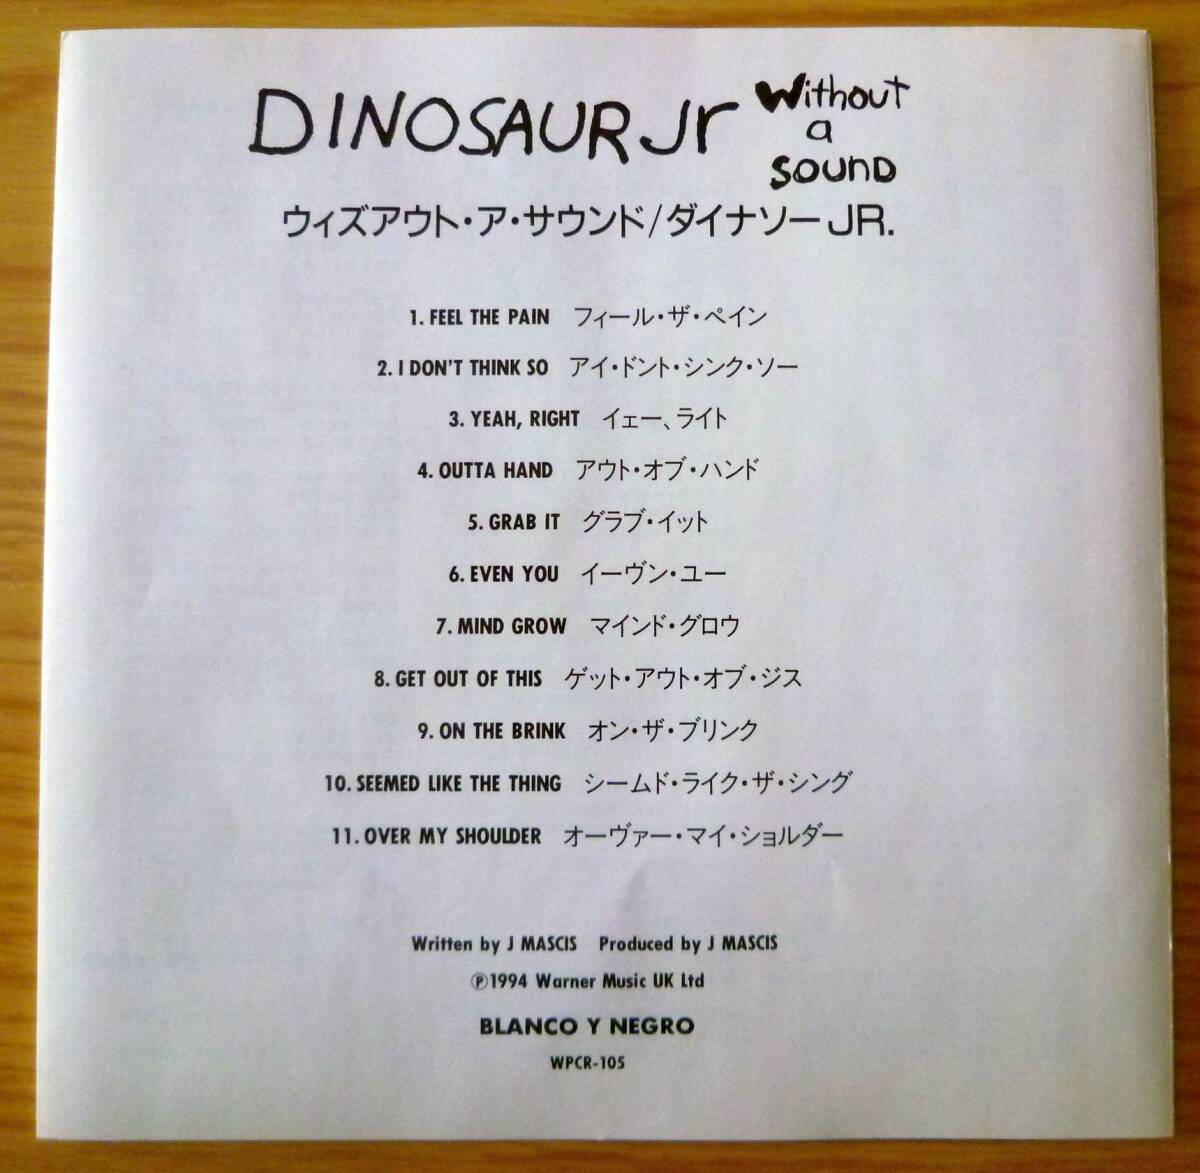 DINOSAUR Jr Without
a
SOUND
ウィズアウト・ア・サウンド/ダイナソーJR.
1. FEEL THE PAIN フィール・ザ・ペイン
2. I DON'T THINK SO アイ・ドント・シンク・ソー
3. YEAH, RIGHT イェー、ライト
4. OUTTA HAND アウト・オブ・ハンド
5. GRAB IT グラブ・イット
6. EVEN YOU イーヴン・ユー
7. MIND GROW マインド・グロウ
8. GET OUT OF THIS ゲット・アウト・オブ・ジス
9. ON THE BRINK オン・ザ・ブリンク
10. SEEMED LIKE THE THING シームド・ライク・ザ・シング
11. OVER MY SHOULDER オーヴァー・マイ・ショルダー
Written by J MASCIS Produced by J MASCIS
Ⓟ1994 Warner Music UK Ltd
BLANCO Y NEGRO
WPCR-105